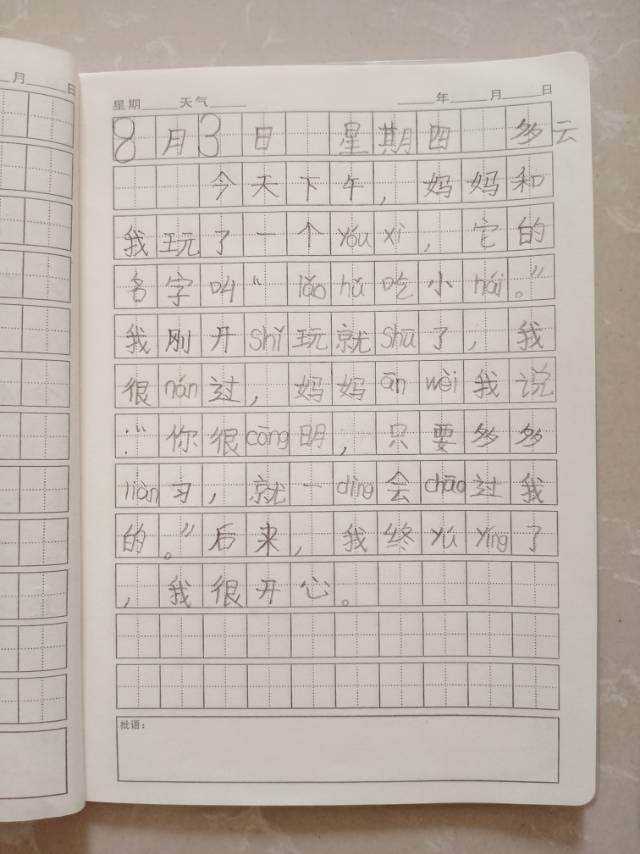 月 日
星期 天气 年 月 日
8月3日 星期四 多云
今天下午，妈妈和
我玩了一个yóu xì，它的
名字叫“lǎo hǔ吃小hái。”
我刚开shǐ玩就shū了，我
很nán过，妈妈ān wèi我说
：“你很cōng明，只要多多
liàn习，就一dìng会chāo过我
的。”后来，我终yú yíng了
，我很开心。
批语：